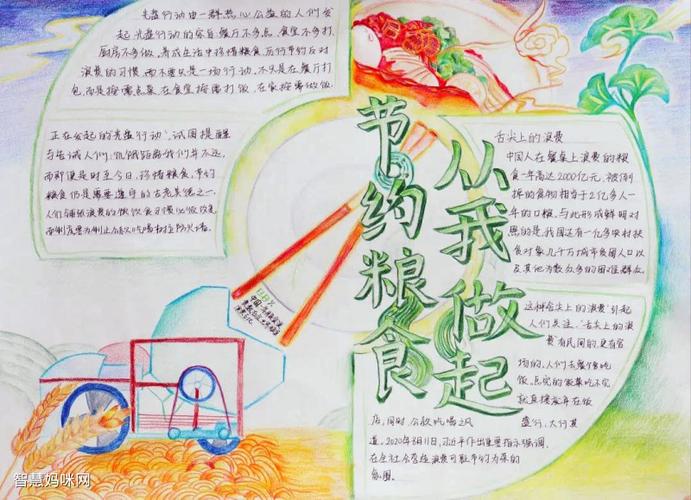 光盘行动由一群热心公益的人们发
起,光盘行动的宗旨:餐厅不多点、食堂不多打、
厨房不多做。养成生活中珍惜粮食、厉行节约反对
浪费的习惯,而不要只是一场行动。不只是在餐厅打
包,而是按需点菜,在食堂按需打饭,在家按需做饭.
正在发起的"光盘行动",试图提醒
与告诫人们:饥饿距离我们并不远,
而即便是时至今日,珍惜粮食,节约
粮食仍是需要遵守的古老美德之一.
节约粮食
从我做起
舌尖上的浪费
中国人在餐桌上浪费的粮
食一年高达2000亿元,被倒
掉的食物相当于2亿多人一
年的口粮。与此形成鲜明对
照的是,我国还有一亿多农村扶
贫对象、几千万城市贫困人口以
及其他为数众多的困难群众.
这种舌尖上的浪费,引起
人们关注。"舌尖上的浪
费"有民间的,更有官
场的,人们去餐馆吃
饭,点完的饭菜吃不完
就直接放弃在饭
店,同时,公款吃喝之风 盛行,大行其
道,2020年8月11日,习近平作出重要指示强调,
在全社会营造浪费可耻节约为荣的
氛围。
智慧妈咪网